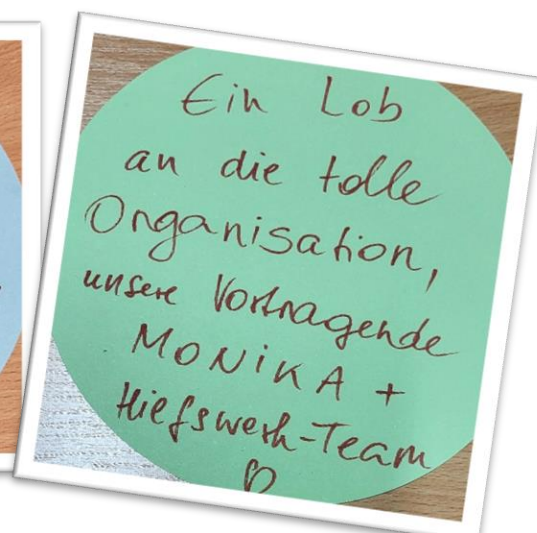 Ein Lob
an die tolle
Organisation,
unsere Vortragende
MONiKA +
Hiefswerk-Team
♡